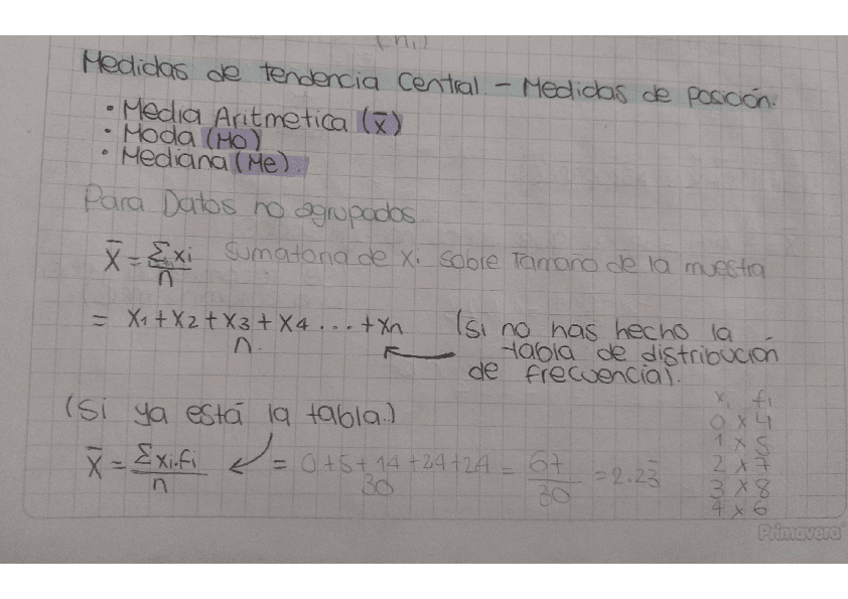 (ni)
Medidas de tendencia Central - Medidas de posición.
• Media Aritmetica (x̄)
• Moda (Mo)
• Mediana (Me).
Para Datos no agrupados.
X̄ = Σxi / n Sumatoria de Xi sobre Tamaño de la muestra
= X1 + X2 + X3 + X4 ... + Xn / n. (si no has hecho la
tabla de distribución
de frecuencia).
(Si ya está la tabla.)
X̄ = Σxi.fi / n = 0+5+14+24+24 / 30 = 67 / 30 = 2.23
xi fi
0 x 4
1 x 5
2 x 7
3 x 8
4 x 6
Primavera